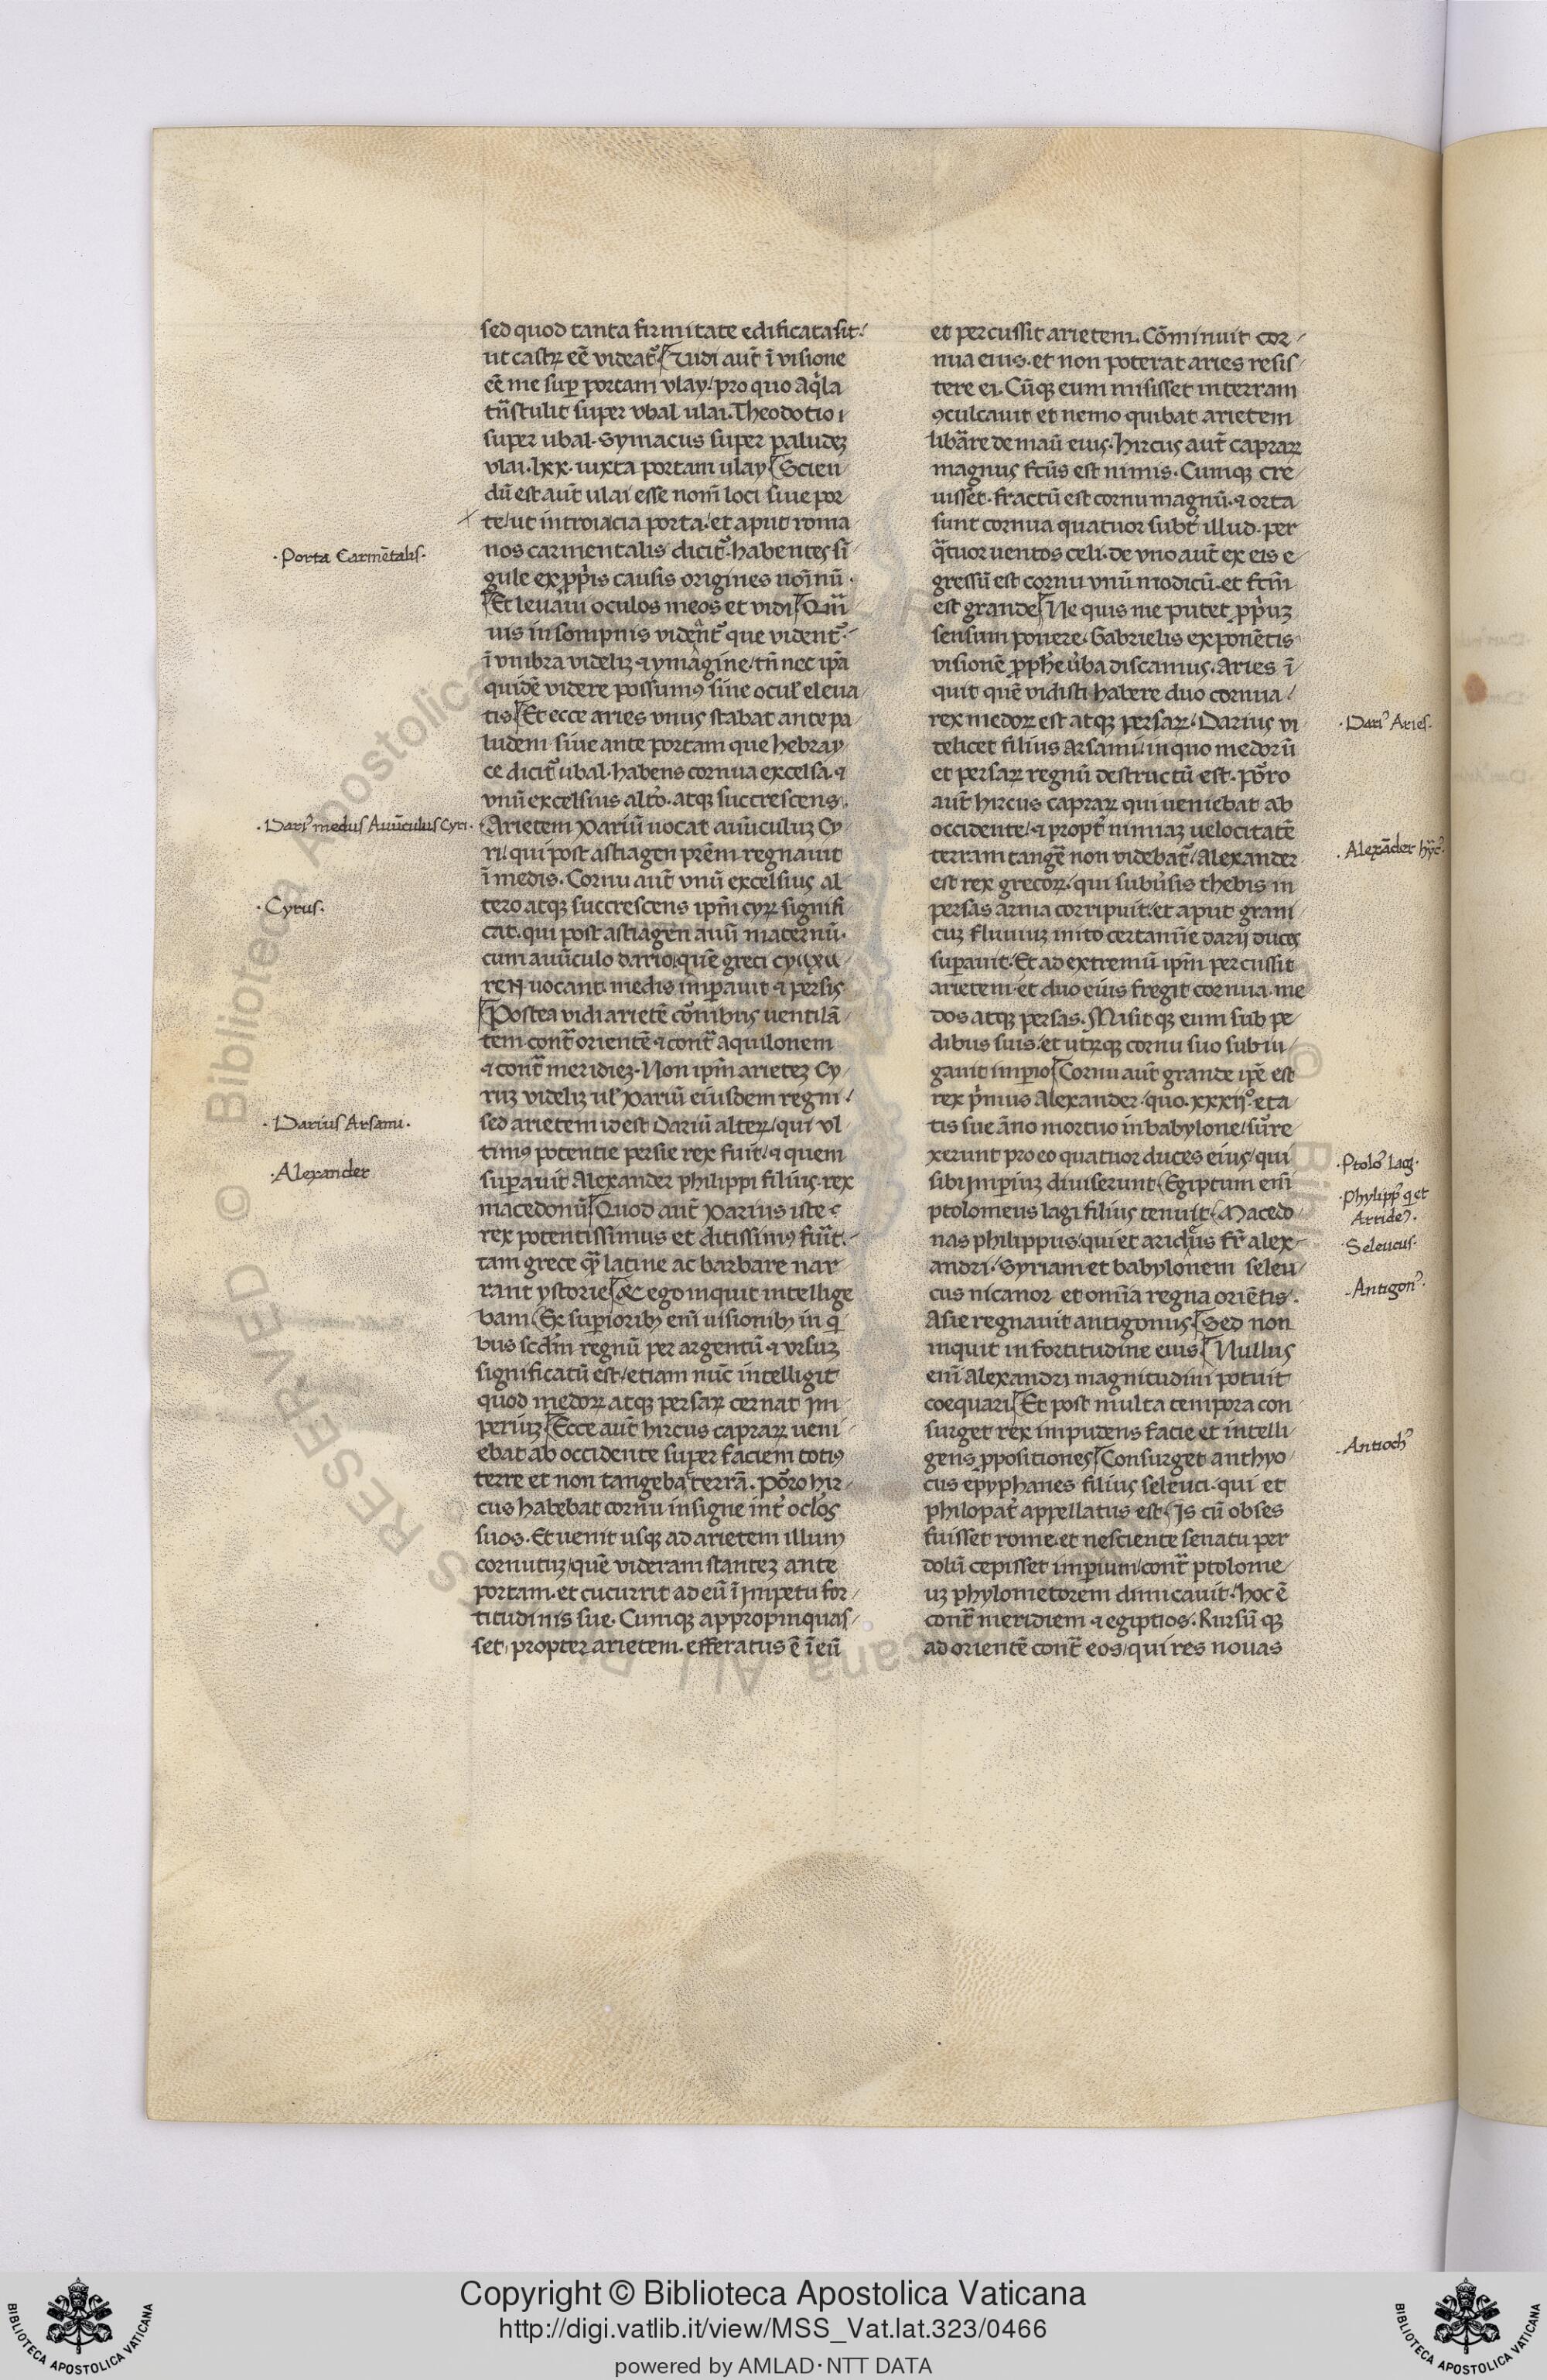 sed quod tanta firmitate edificata sit/
ut castr̄ eē videat᷑ Uidi aut̄ ī visione
eē me sup̄ portam vlay/ pro quo Aq̇la
trn̄stulit super vbal ulai. Theodotio
super ubal. Symacus super paludeꝫ
vlai. lxx. iuxta portam ulay. Scien/
dū est aut̄ ulai esse nom̄ loci siue por
te/ ut in troia scia porta/ et aput roma
nos carmentalis dicit᷑. habentes si/
gule ex ꝓpriis causis origines noīnū.
Et leuaui oculos meos et vidi Qm̄
uis in sompnis videnᷓt᷑ que vident᷑.
ī vmbra videliꝫ ⁊ ymagine/ tn̄ nec ip̄a
quidē videre possumꝰ sine ocul᷒ eleua/
tis Et ecce aries vnus stabat ante pa/
ludem siue ante portam que hebray/
ce dicit᷑ ubal. habens cornua excelsa. ⁊
vnū excelsius alt̄o. atqꝫ succrescens.
Arietem Dariū uocat auūculuꝫ Cy/
ri/ qui post astiagen prēm regnauit
ī medis. Cornu aut̄ vnū excelsius al/
tero atqꝫ succrescens ipm̄ cyrꝫ signifi
cat. qui post astiagen auū maternū.
cum auūculo dario/ quē greci cyaxa
ren uocant. medis imp̄auit ⁊ persis
Postea vidi arietē co᷑nibus uentilā/
tem cont᷑ orientē ⁊ cont᷑ aquilonem
⁊ cont᷑ meridieꝫ. Non ipm̄ arieteꝫ Cy/
ruꝫ videliꝫ ul᷒ Dariū eiusdem regni/
sed arietem id est Dariū alterꝫ/ qui vl/
timꝰ potentie persie rex fuit/ ⁊ quem
sup̄auit Alexander philippi filius. rex
macedonū Quod aut̄ Darius iste
rex potentissimus et ditissimꝰ fuīt.
tam grece q̄ latine ac barbare nar/
rant ystorie &c ego inquit intellige
bam Ex sup̄iorib᷒ enī uisionib᷒ in q
bus scd̄m regnū per argentū ⁊ vrsuꝫ
significatū est/ etiam nūc intelligit
quod medoꝝ atqꝫ persaꝝ cernat Im/
periuꝫ Ecce aut̄ hircus capraꝝ ueni/
ebat ab occidente super faciem totiꝰ
terre et non tangebat terrā. Po᷑ro hir/
cus habebat cornu insigne int̄ oc̄los
suos. Et uenit usqꝫ ad arietem illum
cornutuꝫ/ quē videram stanteꝫ ante
portam. et cucurrit ad eū ī Impetu for/
titudinis sue. Cumqꝫ appropinquas/
set, propter arietem. efferatus ē ī eū
et percussit arietem. Cōminuit cor/
nua eius. et non poterat aries resis/
tere ei. Cūqꝫ eum misisset in terram
ꝯculcauit et nemo quibat arietem
libāre de manū eius. hircus aut̄ capraꝝ
magnus fcūs est nimis. Cumqꝫ cre/
uisset. fractū est cornu magnū. ⁊ orta
sunt cornua quatuor subt̄ illud. per
q̄tuor uentos celi. de vno aut̄ ex eis e/
gressū est cornu vnū modicū. et fctm̄
est grande Ne quis me putet ꝓpriuꝫ
sensum ponere. Gabrielis exponētis
visionē ꝓphē ūba discamus. Aries ī
quit quē vidisti habere duo cornua/
rex medoꝝ est atqꝫ persaꝝ/ Darius vi
telicet filius Arsami/ in quo medorū
et persaꝝ regnū destructū est. po᷑ro
aut̄ hircus capraꝝ qui ueniebat ab
occidente/ ⁊ propt̄ nimiaꝫ uelocitatē
terram tangē non videbat᷑/ Alexander
est rex grecoꝝ/ qui subūsis thebis in
persas arma corripuit/ et aput grani/
cuꝫ fluuiuꝫ inito certamīe darij duces
sup̄auit. Et ad extremū ipm̄ percussit
arietem. et duo eius fregit cornua. me
dos atqꝫ persas. Misit qꝫ eum sub pe/
dibus suis. et utrqꝫ cornu suo subiu/
gauit imp̄io Cornu aut̄ grande ip̄e est
rex p̄mus Alexander. quo. xxxij°. eta
tis sue āno mortuo in babylone/ su᷑re
xerunt pro eo quatuor duces eius/ qui
sibi Imperiuꝫ diuiserunt Egiptum enī
ptolomeus lagi filius tenuit Macedo/
nas philippus/ qui et arideus fr̄ alex/
andri/ Syriam et babylonem seleu/
cus nicanor et omīa regna oriētis.
Asie regnauit antigonus Sed non
inquit in fortitudine eius Nullus
enī Alexandri magnitudini potuit
coequari Et post multa tempora con
surget rex impudens facie et intelli/
gens ꝓpositiones Consurget anthyo/
cus epyphanes filius seleuci. qui et
philopat̄ appellatus est Is cū obses
fuisset rome. et nesciente senatu per
dolū cepisset imp̄ium/ cont᷑ ptolome/
uꝫ phylometorem dimicauit/ hoc ē
cont᷑ meridiem ⁊ egiptios. Rursū qꝫ
ad orientē cont᷑ eos/ qui res nouas
·Porta Carmētalis·
·Dariꝰ medus Auūculus Cyri·
·Cyrus·
·Darius Arsami·
·Alexander
·Dariꝰ Aries·
·Alexāder hyrcꝰ·
·Ptoloꝰ Lagi·
·Phylippꝰ q et
Arrideꝰ·
·Seleucus·
·Antigonꝰ·
·Antiochꝰ
© Biblioteca Apostolica Vaticana ALL RIGHTS RESERVED
Copyright © Biblioteca Apostolica Vaticana
http://digi.vatlib.it/view/MSS_Vat.lat.323/0466
powered by AMLAD·NTT DATA
BIBLIOTECA APOSTOLICA VATICANA
BIBLIOTECA APOSTOLICA VATICANA